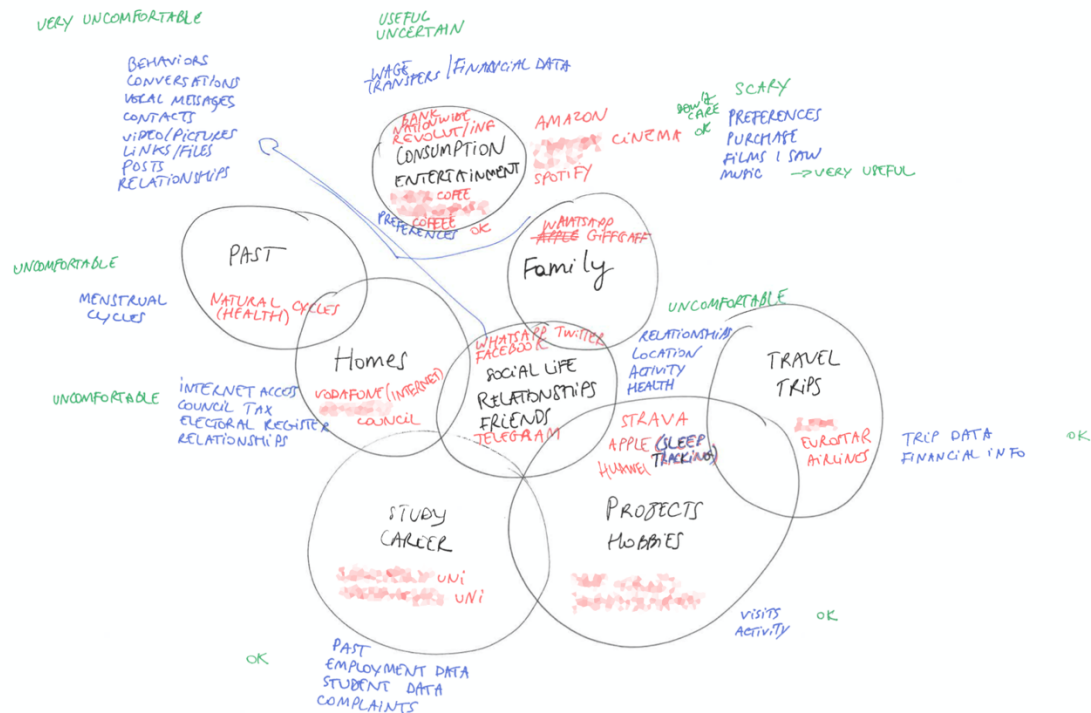 VERY UNCOMFORTABLE
BEHAVIORS
CONVERSATIONS
VOCAL MESSAGES
CONTACTS
VIDEO/PICTURES
LINKS/FILES
POSTS
RELATIONSHIPS
USEFUL
UNCERTAIN
WAGE
TRANSFERS / FINANCIAL DATA
BANK
NATIONWIDE
REVOLUT/ING
CONSUMPTION
ENTERTAINMENT
COFEE
COFEEE
PREFERENCES OK
AMAZON
CINEMA
SPOTIFY
DON'T
CARE
OK
SCARY
PREFERENCES
PURCHASE
FILMS I SAW
MUSIC → VERY USEFUL
PAST
NATURAL CYCLES
(HEALTH)
UNCOMFORTABLE
MENSTRUAL
CYCLES
WHATSAPP
APPLE GIFFGAFF
Family
Homes
VODAFONE (INTERNET)
COUNCIL
UNCOMFORTABLE
INTERNET ACCES
COUNCIL TAX
ELECTORAL REGISTER
RELATIONSHIPS
WHATSAPP TWITTER
FACEBOOK
SOCIAL LIFE
RELATIONSHIPS
FRIENDS
TELEGRAM
UNCOMFORTABLE
RELATIONSHIPS
LOCATION
ACTIVITY
HEALTH
TRAVEL
TRIPS
EUROSTAR
AIRLINES
TRIP DATA
FINANCIAL INFO
OK
STRAVA
APPLE (SLEEP
HUAWEI TRACKING)
PROJECTS
HOBBIES
VISITS
ACTIVITY
OK
STUDY
CAREER
UNI
UNI
OK
PAST
EMPLOYMENT DATA
STUDENT DATA
COMPLAINTS